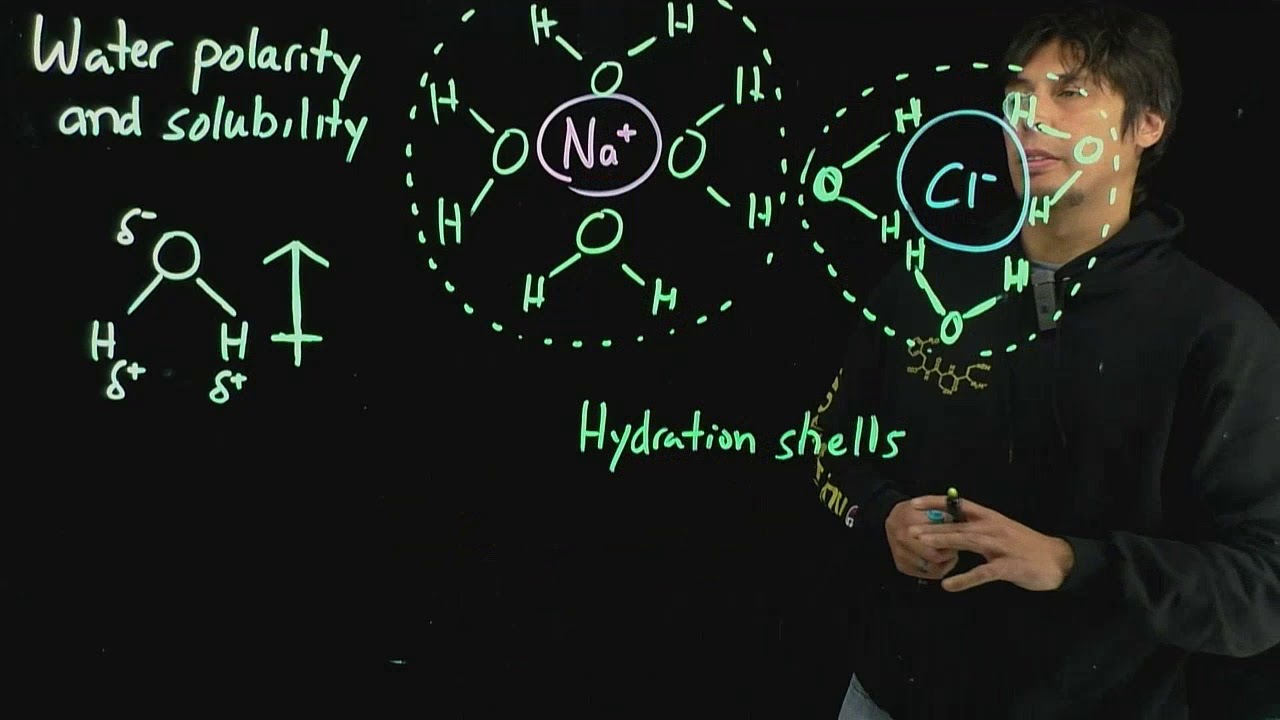 Water polarity
and solubility
δ- O
H H
δ+ δ+
H H
O
H O Na+ O H
H H
O
H H
H H
O Cl- O
H H
H H
O
Hydration shells